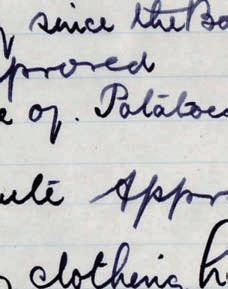 since the Bo
proved
e of. Potatoes
ute Appr
clothing h